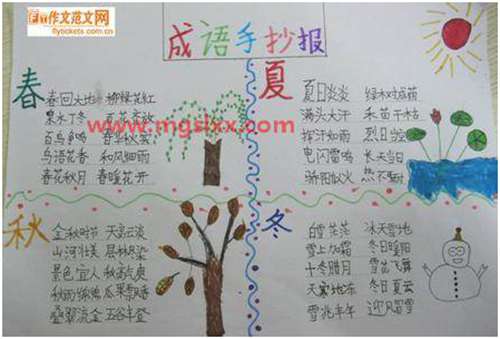 作文范文网
成语手抄报
春
春回大地 柳绿花红
泉水丁冬 百花齐放
百鸟争鸣 春华秋实
鸟语花香 和风细雨
春花秋月 春暖花开
www.mgslxx.com
夏
夏日炎炎 绿树成荫
满头大汗 禾苗干枯
挥汗如雨 烈日当空
电闪雷鸣
骄阳似火
秋
金秋时节 天高云淡
山河壮美 层林尽染
景色宜人 秋高气爽
秋雨绵绵 瓜果飘香
叠翠流金 五谷丰登
冬
白雪茫茫 冰天雪地
雪上加霜 冬日暖阳
十冬腊月 雪花飞舞
天寒地冻 冬日夏云
雪兆丰年 迎风冒雪